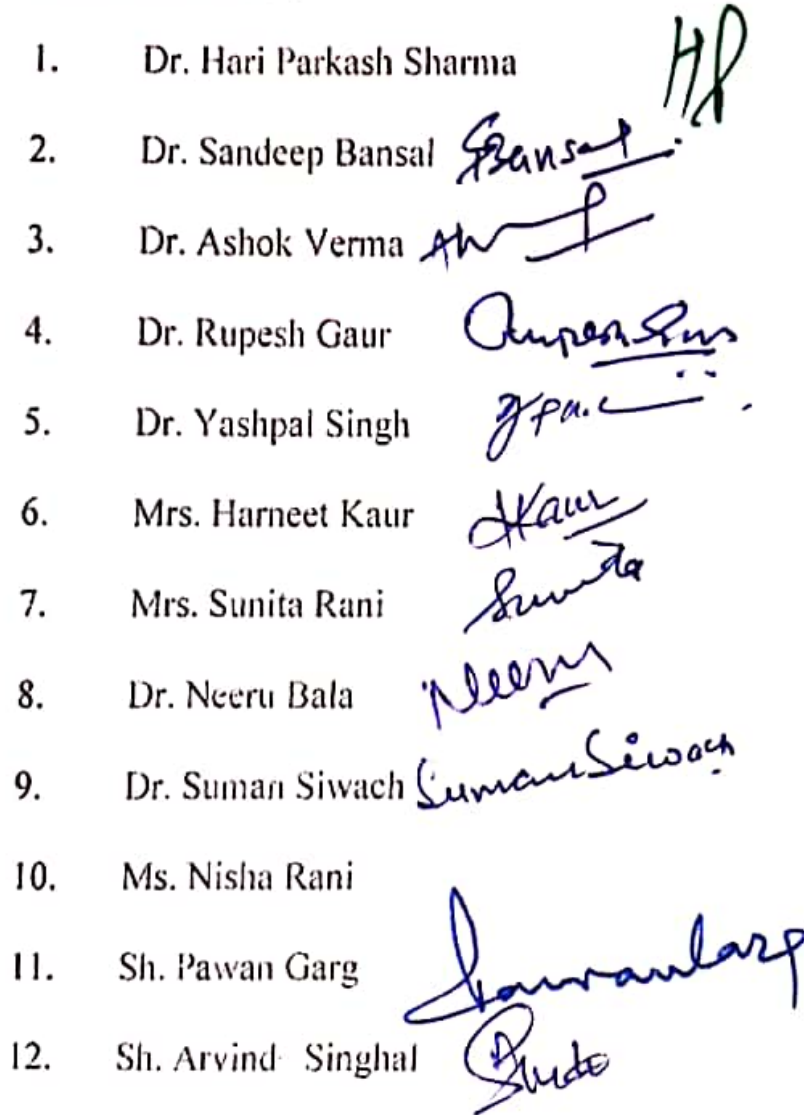 1. Dr. Hari Parkash Sharma HP
2. Dr. Sandeep Bansal SBansal
3. Dr. Ashok Verma
4. Dr. Rupesh Gaur
5. Dr. Yashpal Singh
6. Mrs. Harneet Kaur HKaur
7. Mrs. Sunita Rani Sunita
8. Dr. Neeru Bala Neeru
9. Dr. Suman Siwach Suman Siwach
10. Ms. Nisha Rani
11. Sh. Pawan Garg
12. Sh. Arvind Singhal